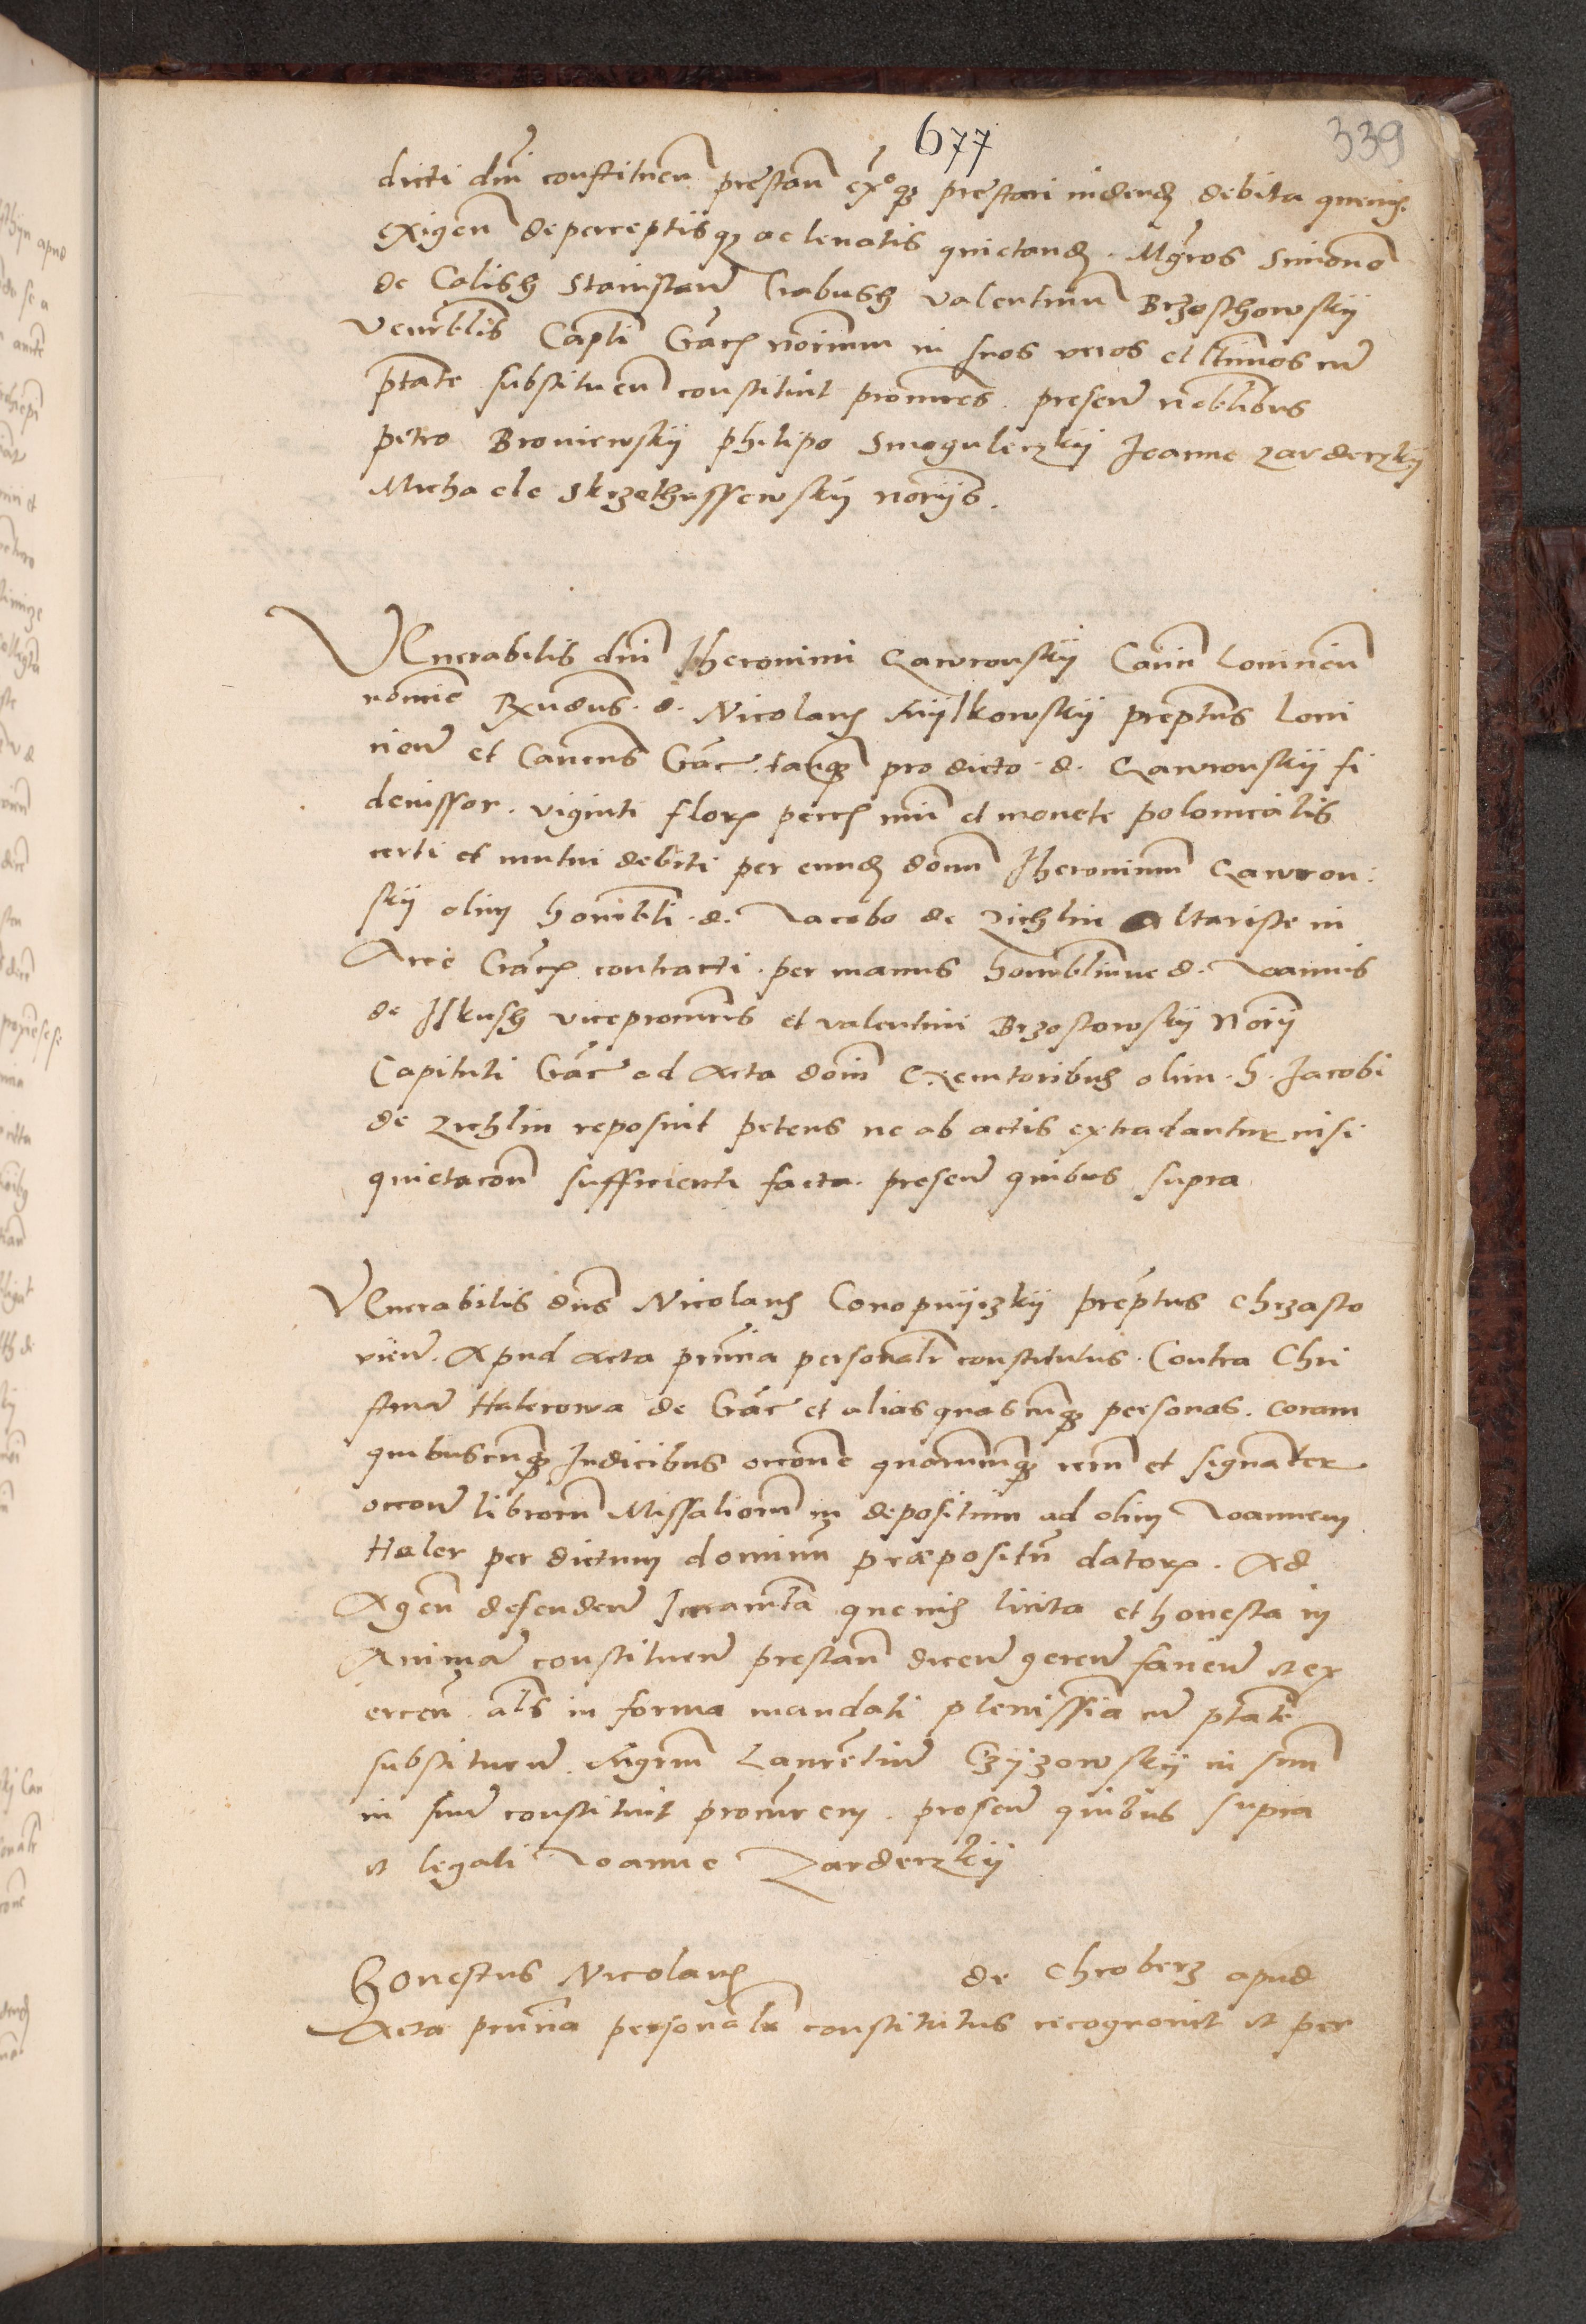 677
339
dicti dni constituen prestan exoq prestari videndi debita quevis
exigen de perceptisq ac levatis quietand. Mgros Simonem
de Calish Stanislaum Crabush valentinum Brzoschowsky
venerblis Capli Crac norium in suos veros et ltimos cum
ptate substituen constituit procures. presen nobilibus
petro Broniewskij philipo Smoguleczkij Joanne Zardeczkij
Michaele Skrzethussewskij norijs.
VEnerabilis dni Jheronimi Gawronskij Canon Lovicien
nomine Rvndus. d. Nicolaus Kijlkowskij preptus Lovi
cien et Canicus Crac. tanq pro dicto d. Gawronskij fi
deiussor. viginti flor pecc nui et monete polonicalis
certi et mutui debiti per eundem donum Jheronimum Gawron:
skij olim honobli. d. Jacobo de Zichlin altariste in
Arce Crac contracti. per manus honorbliumue d. Joannis
de Ilkush viceprocuris et valentini Brzostowskij Norij
Capituli Crac ad Acta donin Executoribus olim. h. Jacobi
de Zichlin reposuit petens ne ab actis extradantur nisi
quietacon sufficienti facta. presen quibus supra
VEnerabilis dns Nicolaus Conopnijczkij preptus Chrzasto
vien. Apud Acta pruna personalr constitutus. Contra Chri
stina Halerowa de Crac et alias quascunq personas. coram
quibuscunq Judicibus occone quorumcunq rerum et signanter
occone librorum Missaliorum in depositum ad olim Joannem
Haler per dictum dominum præpositum dator. Ad
Agen defenden Juramta quevis licita et honesta in
Animam constituen prestan dicen geren facien et ex
ercen. als in forma mandati plenissima cum ptate
substituen. Mgrum Laurentium Czijzowskij in suum
in suum constituit procurem. presen quibus supra
et legali Joanne Zarderzkij
Honestus Nicolaus de Chroberz apud
Acta pruna personalr constitutus recognovit et per